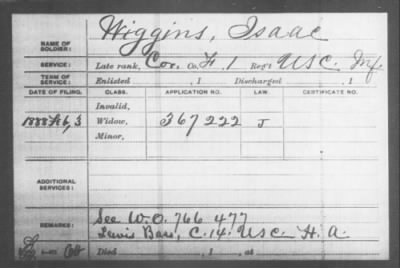 NAME OF SOLDIER: Wiggins, Isaac
SERVICE: Late rank, Cor. Co. F, 1 Reg't U S C. Inf.
TERM OF SERVICE: Enlisted , 1 Discharged , 1
DATE OF FILING. CLASS. APPLICATION NO. LAW. CERTIFICATE NO.
Invalid,
1888 Feb 3 Widow, 367222 J
Minor,
ADDITIONAL SERVICES:
REMARKS: See W.O. 766 477
Lewis Bass, C. 14. U S C. H. A.
Died , 1 , at